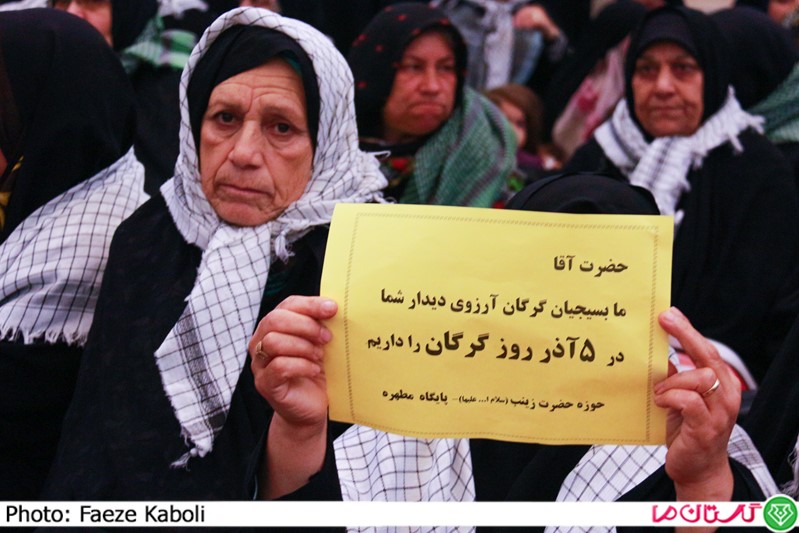 حضرت آقا
ما بسیجیان گرگان آرزوی دیدار شما
در ۵آذر روز گرگان را داریم
حوزه حضرت زینب (سلام ا... علیها) - پایگاه مطهره
Photo: Faeze Kaboli
گلستان ما